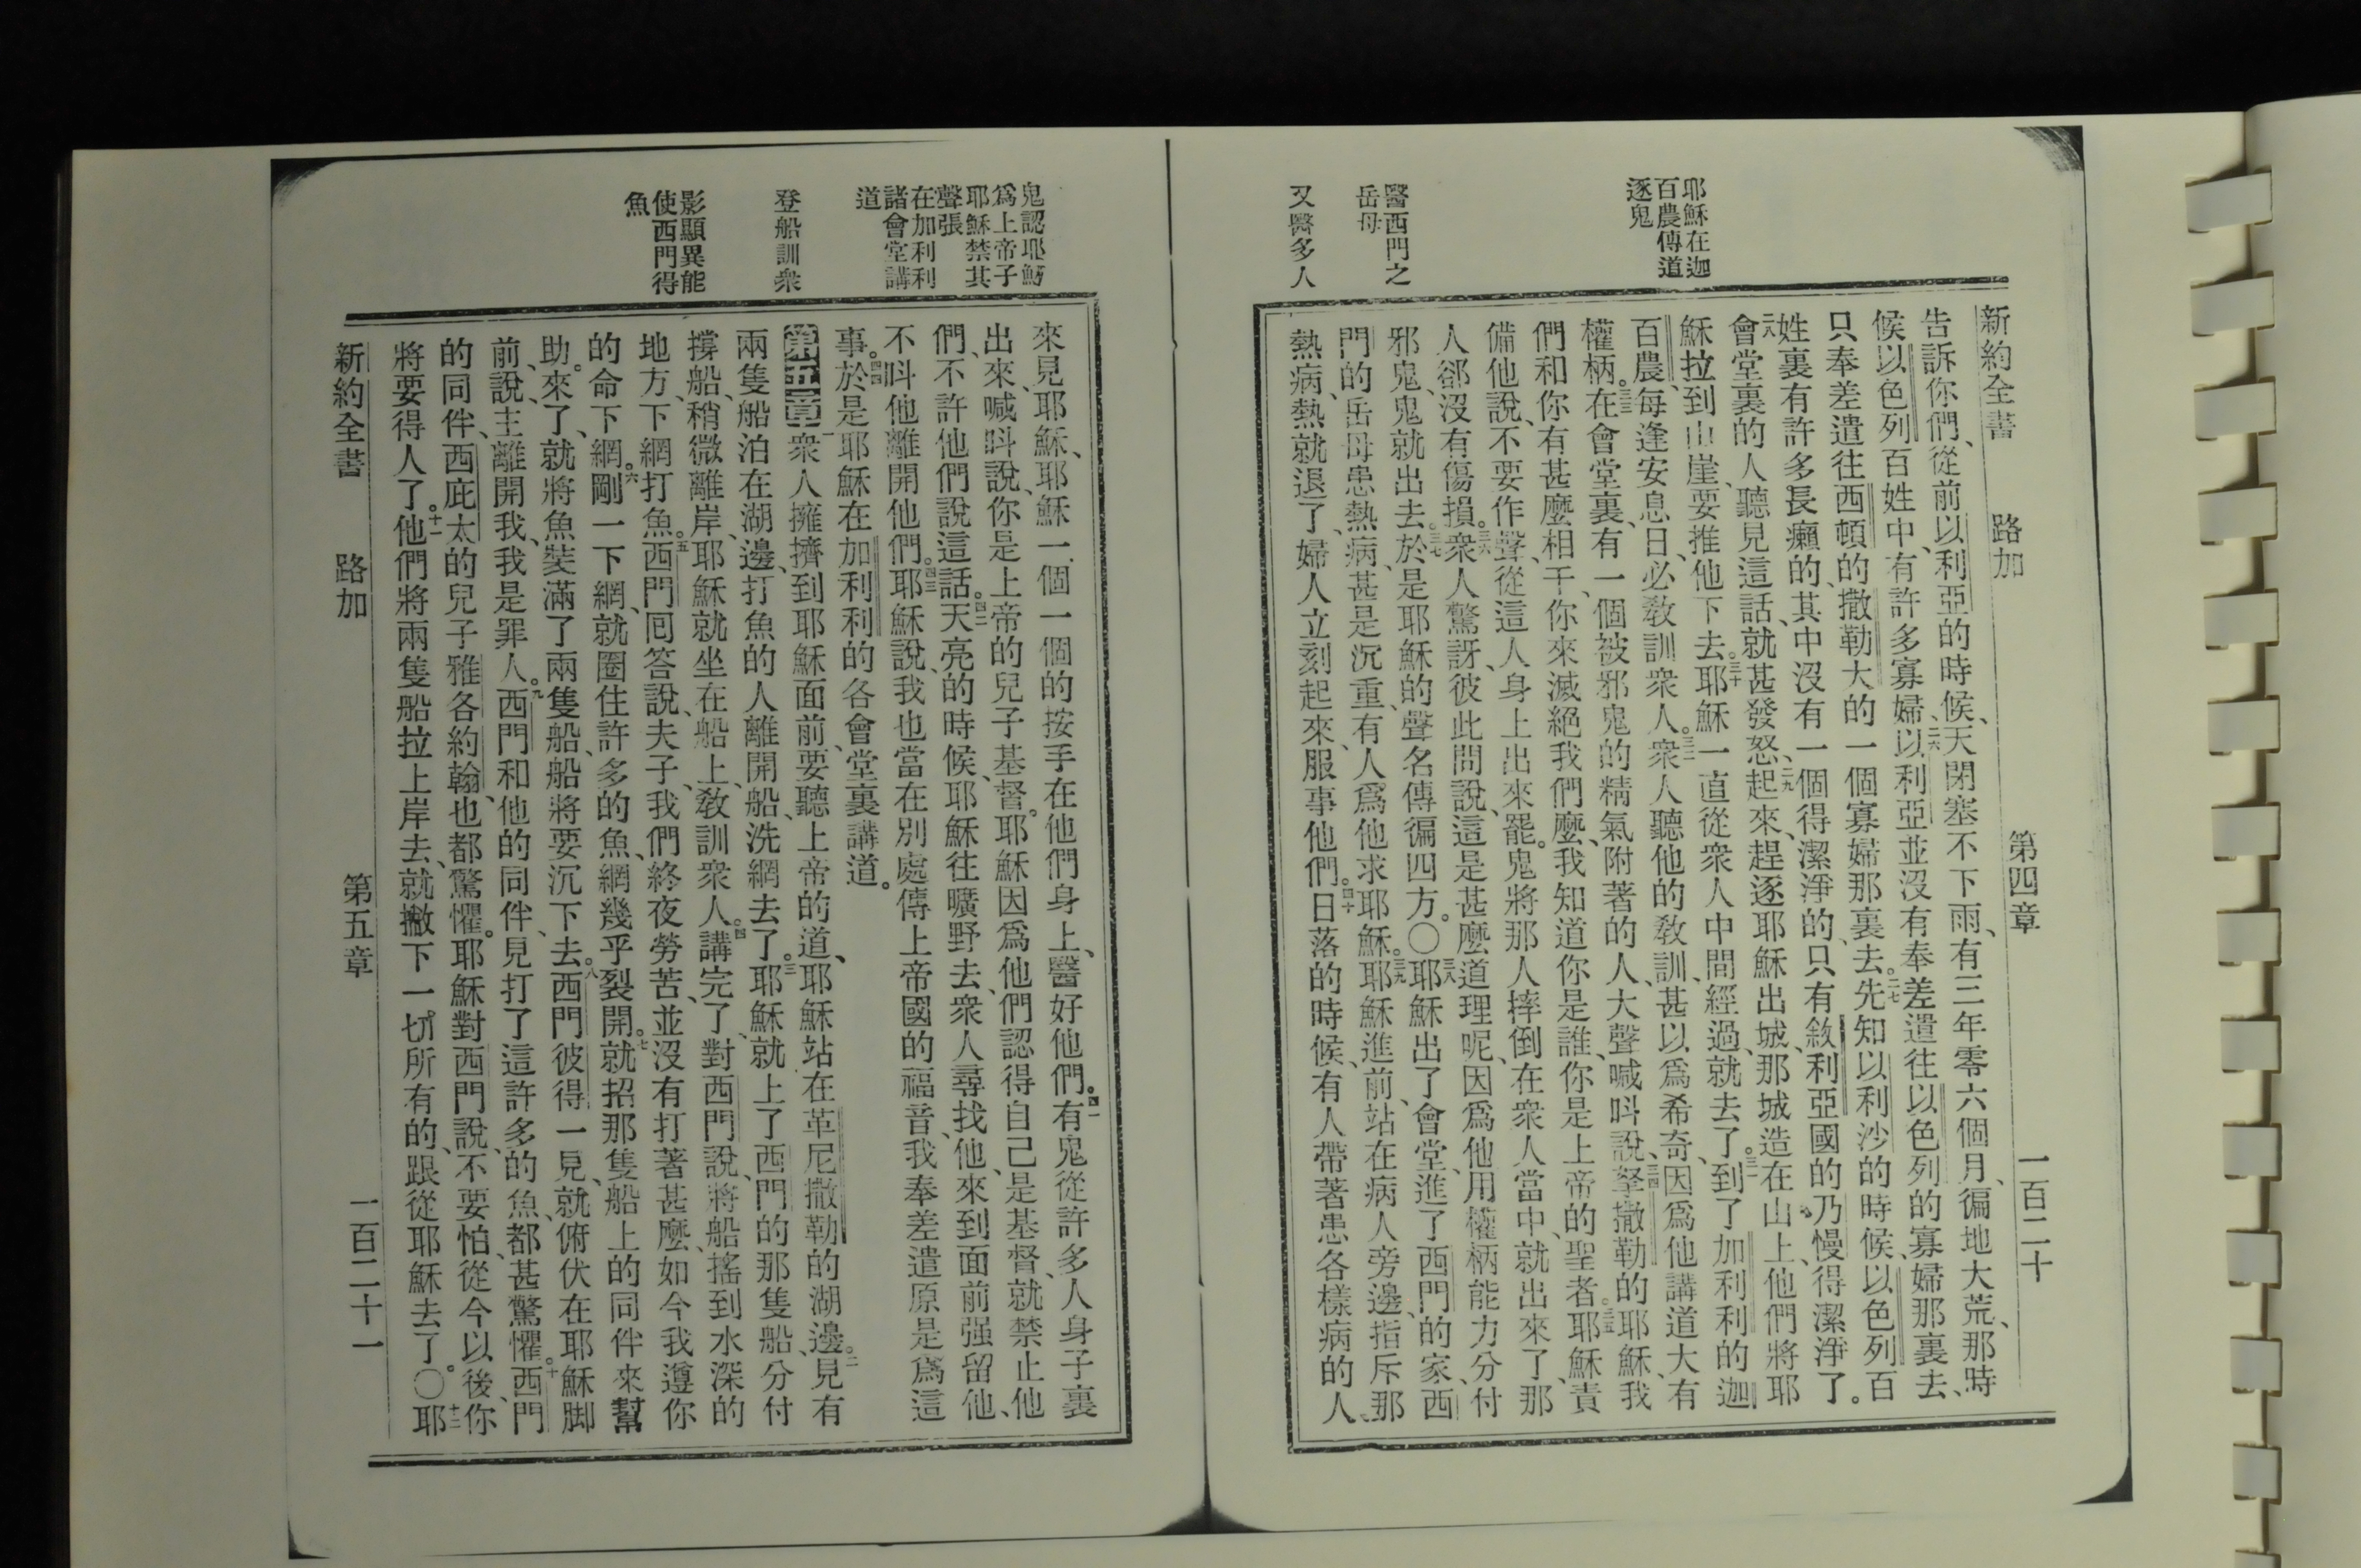 新約全書　路加　第四章　一百二十
耶穌在迦
百農傳道
逐鬼
醫西門之
岳母
又醫多人
告訴你們、從前以利亞的時候、天閉塞不下雨、有三年零六個月、徧地大荒、那時
候以色列百姓中、有許多寡婦、二六以利亞並沒有奉差遣往以色列的寡婦那裏去、
只奉差遣往西頓的撒勒大的一個寡婦那裏去。二七先知以利沙的時候、以色列百
姓裏有許多長癩的、其中沒有一個得潔淨的、只有敘利亞國的乃慢得潔淨了。
二八會堂裏的人、聽見這話、就甚發怒、二九起來、趕逐耶穌出城、那城造在山上、他們將耶
穌拉到山崖、要推他下去。三十耶穌一直從衆人中間經過、就去了。三一到了加利利的迦
百農、每逢安息日、必敎訓衆人。三二衆人聽他的敎訓、甚以爲希奇、因爲他講道大有
權柄。三三在會堂裏、有一個被邪鬼的精氣附著的人、大聲喊呌說、三四拏撒勒的耶穌、我
們和你有甚麼相干、你來滅絕我們麼、我知道你是誰、你是上帝的聖者。三五耶穌責
備他說、不要作聲、從這人身上出來罷。鬼將那人摔倒在衆人當中、就出來了、那
人卻沒有傷損。三六衆人驚訝、彼此問說、這是甚麼道理呢、因爲他用權柄能力分付
邪鬼、鬼就出去。三七於是耶穌的聲名傳徧四方。○三八耶穌出了會堂、進了西門的家、西
門的岳母患熱病、甚是沉重、有人爲他求耶穌。三九耶穌進前、站在病人旁邊、指斥那
熱病、熱就退了、婦人立刻起來、服事他們。四十日落的時候、有人帶著患各樣病的人、
鬼認耶穌
爲上帝子
耶穌禁其
聲張
在加利利
諸會堂講
道
登船訓衆
影顯異能
使西門得
魚
來見耶穌、耶穌一個一個的按手在他們身上、醫好他們。四一有鬼從許多人身子裏
出來、喊呌說、你是上帝的兒子基督。耶穌因爲他們認得自己是基督、就禁止他
們、不許他們說這話。四二天亮的時候、耶穌往曠野去、衆人尋找他、來到面前强留他、
不呌他離開他們。四三耶穌說、我也當在別處傳上帝國的福音、我奉差遣原是爲這
事。四四於是耶穌在加利利的各會堂裏講道。
第五章 一衆人擁擠到耶穌面前、要聽上帝的道、耶穌站在革尼撒勒的湖邊。二見有
兩隻船泊在湖邊、打魚的人離開船、洗網去了。三耶穌就上了西門的那隻船、分付
撐船、稍微離岸、耶穌就坐在船上、敎訓衆人。四講完了、對西門說、將船搖到水深的
地方、下網打魚。五西門囘答說、夫子、我們終夜勞苦、並沒有打著甚麼、如今我遵你
的命下網。六剛一下網、就圈住許多的魚、網幾乎裂開。七就招那隻船上的同伴來幫
助。來了、就將魚裝滿了兩隻船、船將要沉下去。八西門彼得一見、就俯伏在耶穌脚
前、說、主離開我、我是罪人。九西門和他的同伴、見打了這許多的魚、都甚驚懼。十西門
的同伴、西庇太的兒子雅各約翰、也都驚懼。耶穌對西門說、不要怕、從今以後、你
將要得人了。十一他們將兩隻船拉上岸去、就撇下一切所有的、跟從耶穌去了。○十二耶
新約全書　路加　第五章　一百二十一